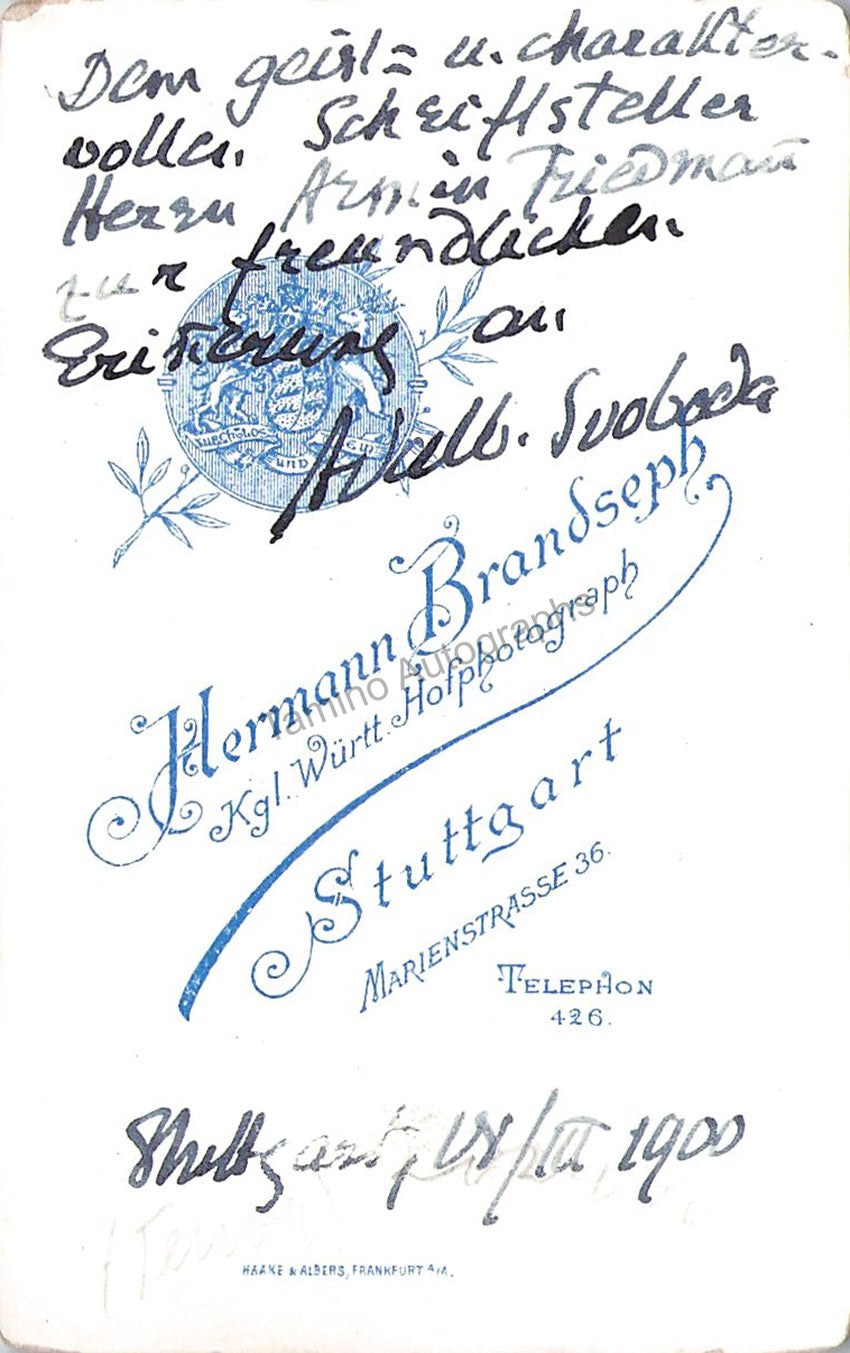 Dem geist= u. charakter-
vollen Schriftsteller
Herrn Armin Friedmañ
zur freundlichen
Eriñerung an
Adalb. Svoboda
FURCHTLOS UND TREW
Hermann Brandseph
Kgl. Württ. Hofphotograph
Stuttgart
MARIENSTRASSE 36.
TELEPHON
426.
Tamino Autographs
Stuttgart, /III 1900
(Tenor)
HAAKE & ALBERS, FRANKFURT A/M.